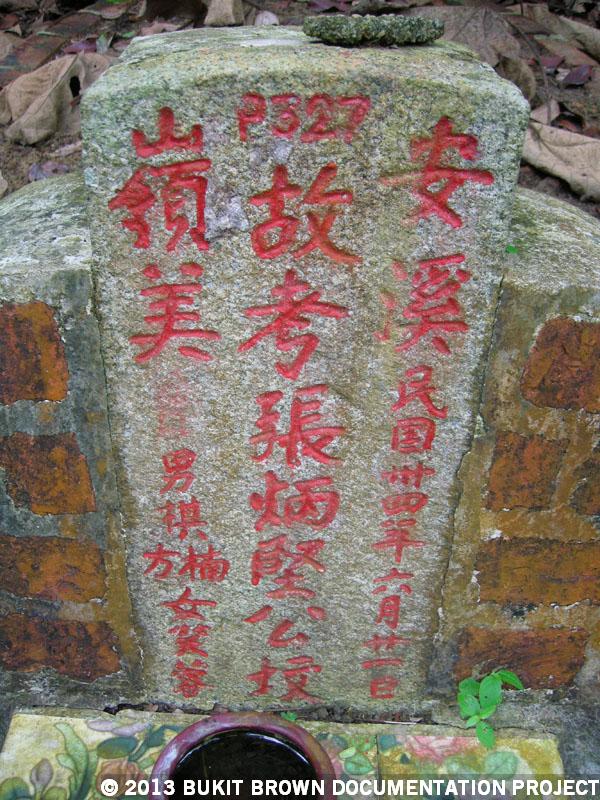 P327
安溪
民国卅四年六月廿一日
故考張炳堅公墳
嶺美
山
男棋楠
方
女笑蓉
© 2013 BUKIT BROWN DOCUMENTATION PROJECT